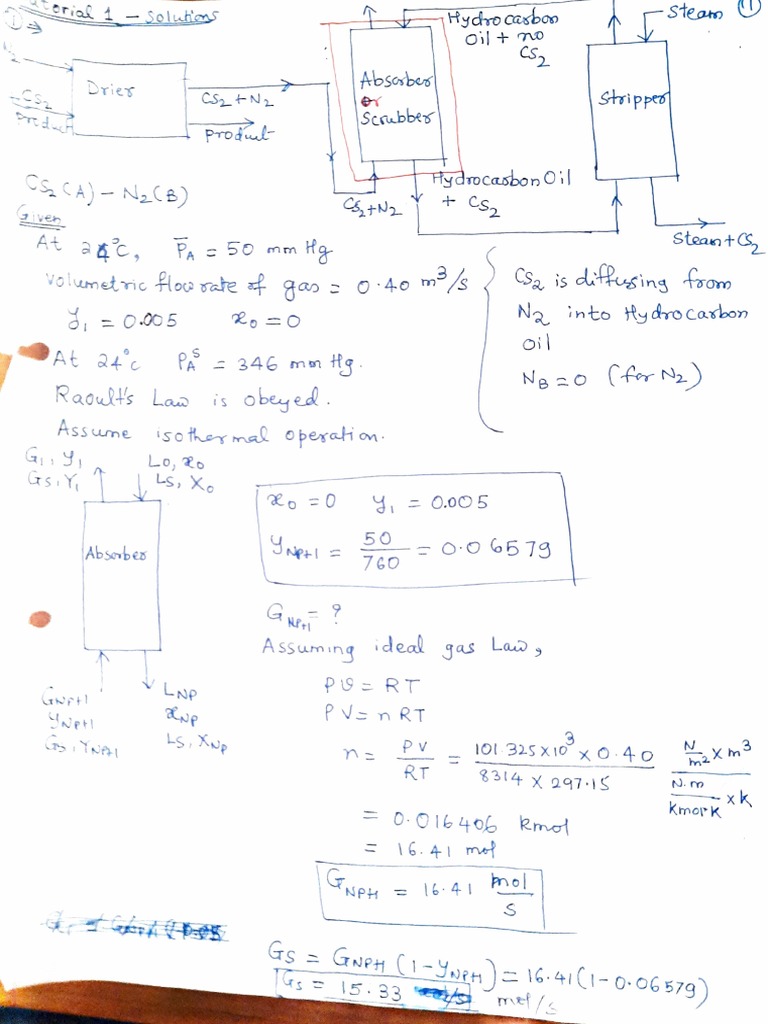 torial 1 - solutions
1)
Drier
CS2
Product
CS2 + N2
Product
Absorber
or
Scrubber
CS2+N2
Hydrocarbon
Oil + no
CS2
Hydrocarbon Oil
+ CS2
Stripper
Steam
1
Steam + CS2
CS2 (A) - N2 (B)
Given
At 24°C, P̄A = 50 mm Hg
Volumetric flow rate of gas = 0.40 m³/s
y1 = 0.005 x0 = 0
At 24°C PAˢ = 346 mm Hg.
Raoult's Law is obeyed.
Assume isothermal operation.
CS2 is diffusing from
N2 into Hydrocarbon
oil
NB = 0 (for N2)
G1, y1
GS, Y1
L0, x0
LS, X0
Absorber
GNP+1
yNP+1
GS, YNP+1
LNP
xNP
LS, XNP
x0 = 0 y1 = 0.005
yNP+1 = 50/760 = 0.06579
GNP+1 = ?
Assuming ideal gas Law,
Pϑ = RT
PV = nRT
n = PV/RT = 101.325 × 10³ × 0.40 / 8314 × 297.15 N/m² × m³ / N.m/kmol K × K
= 0.016406 kmol
= 16.41 mol
GNP+1 = 16.41 mol/s
GS = GNP+1 (1 - yNP+1) = 16.41 (1 - 0.06579)
GS = 15.33 mol/s